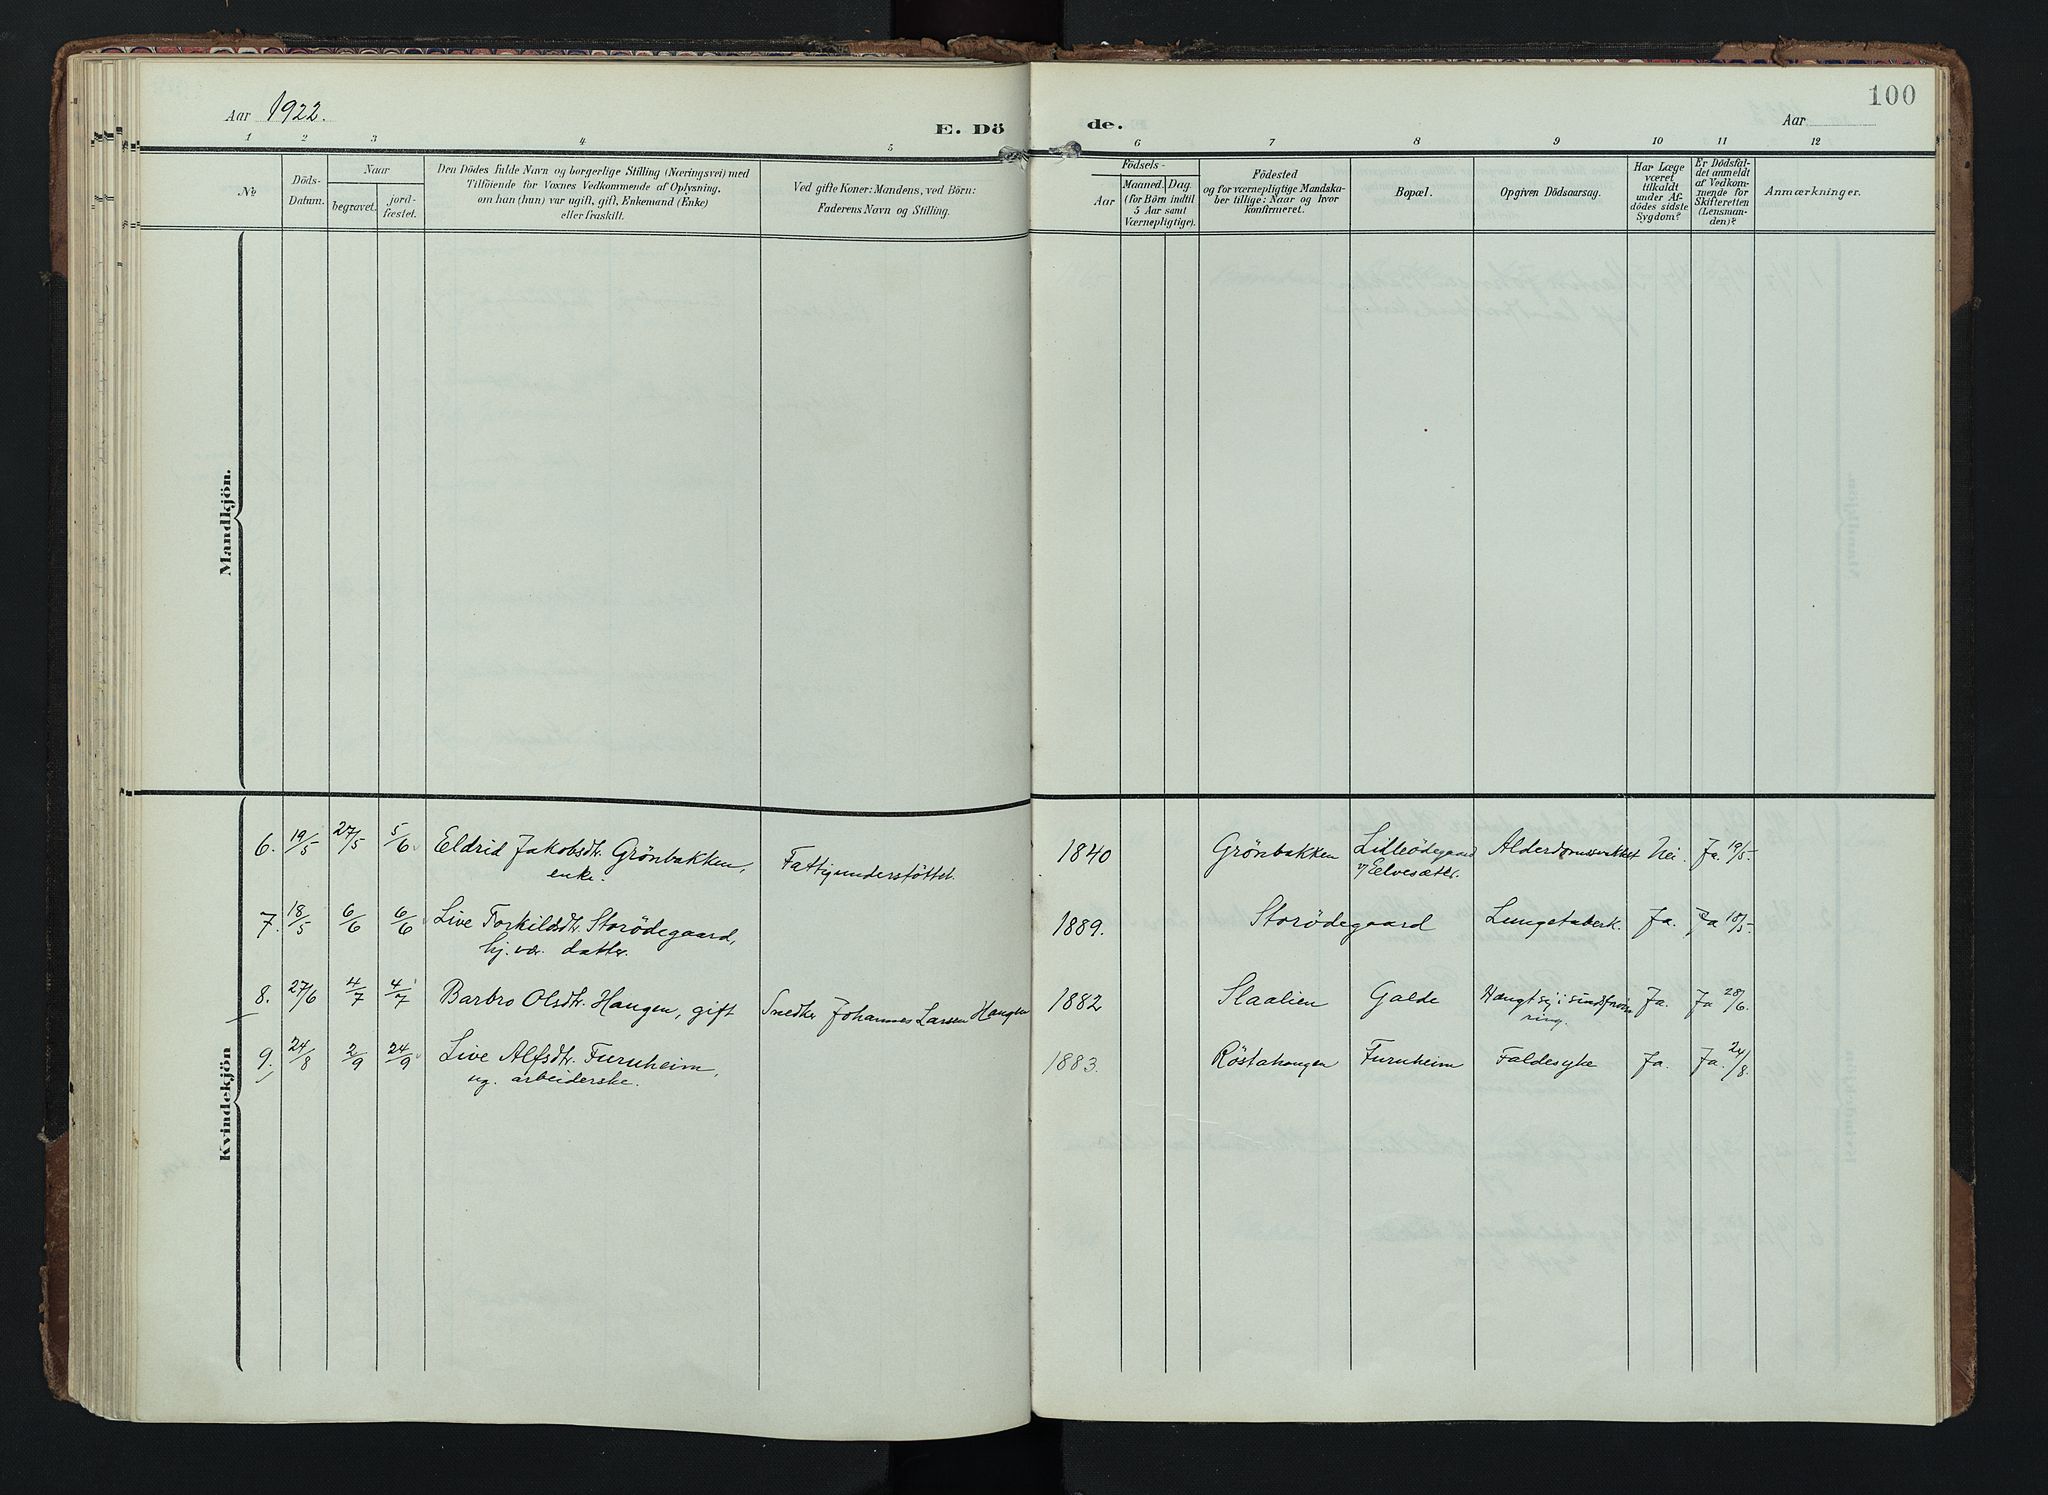 Aar 1922.
E. Dö
de.
Aar
100
1 2 3 4 5 6 7 8 9 10 11 12
No
Döds-
Datum.
Naar
begravet.
jord-
fæstet.
Den Dödes fulde Navn og borgerlige Stilling (Næringsvei) med
Tilföiende for Voxnes Vedkommende af Oplysning,
om han (hun) var ugift, gift, Enkemand (Enke)
eller fraskilt.
Ved gifte Koner: Mandens, ved Börn:
Faderens Navn og Stilling.
Födsels-
Aar
Maaned. Dag.
(for Börn indtil
5 Aar samt
Værnepligtige).
Födested
og for værnepligtige Mandska-
ber tillige: Naar og hvor
konfirmeret.
Bopæl.
Opgiven Dödsaarsag.
Har Læge
været
tilkaldt
under Af-
dödes sidste
Sygdom?
Er Dödsfal-
det anmeldt
af Vedkom-
mende for
Skifteretten
(Lensman-
den)?
Anmærkninger.
Mandkjön.
Kvindekjön
6. 19/5 27/5 5/6 Eldrid Jakobsdtr. Grönbakken, Fattigunderstöttet. 1840 Grönbakken Lilleödegaard Alderdomssvakhet Nei. Ja. 19/5.
enke. v/ Elvesæter.
7. 18/5 6/6 6/6 Live Torkildsdtr. Storödegaard, 1889. Storödegaard Lungetuberk. Ja. Ja 18/5.
hj. vær. datter.
8. 27/6 4/7 4/7 Barbro Olsdtr. Haugen, gift Snedker Johannes Larsen Haugen 1882 Slaalien Galde Hængt sig i sindsforvir- Ja. Ja 28/6.
ring.
9. 24/8 2/9 24/9 Live Alfsdtr. Furuheim, 1883. Röstahaugen Furuheim Faldesyke Ja. Ja. 24/8.
ug. arbeiderske.